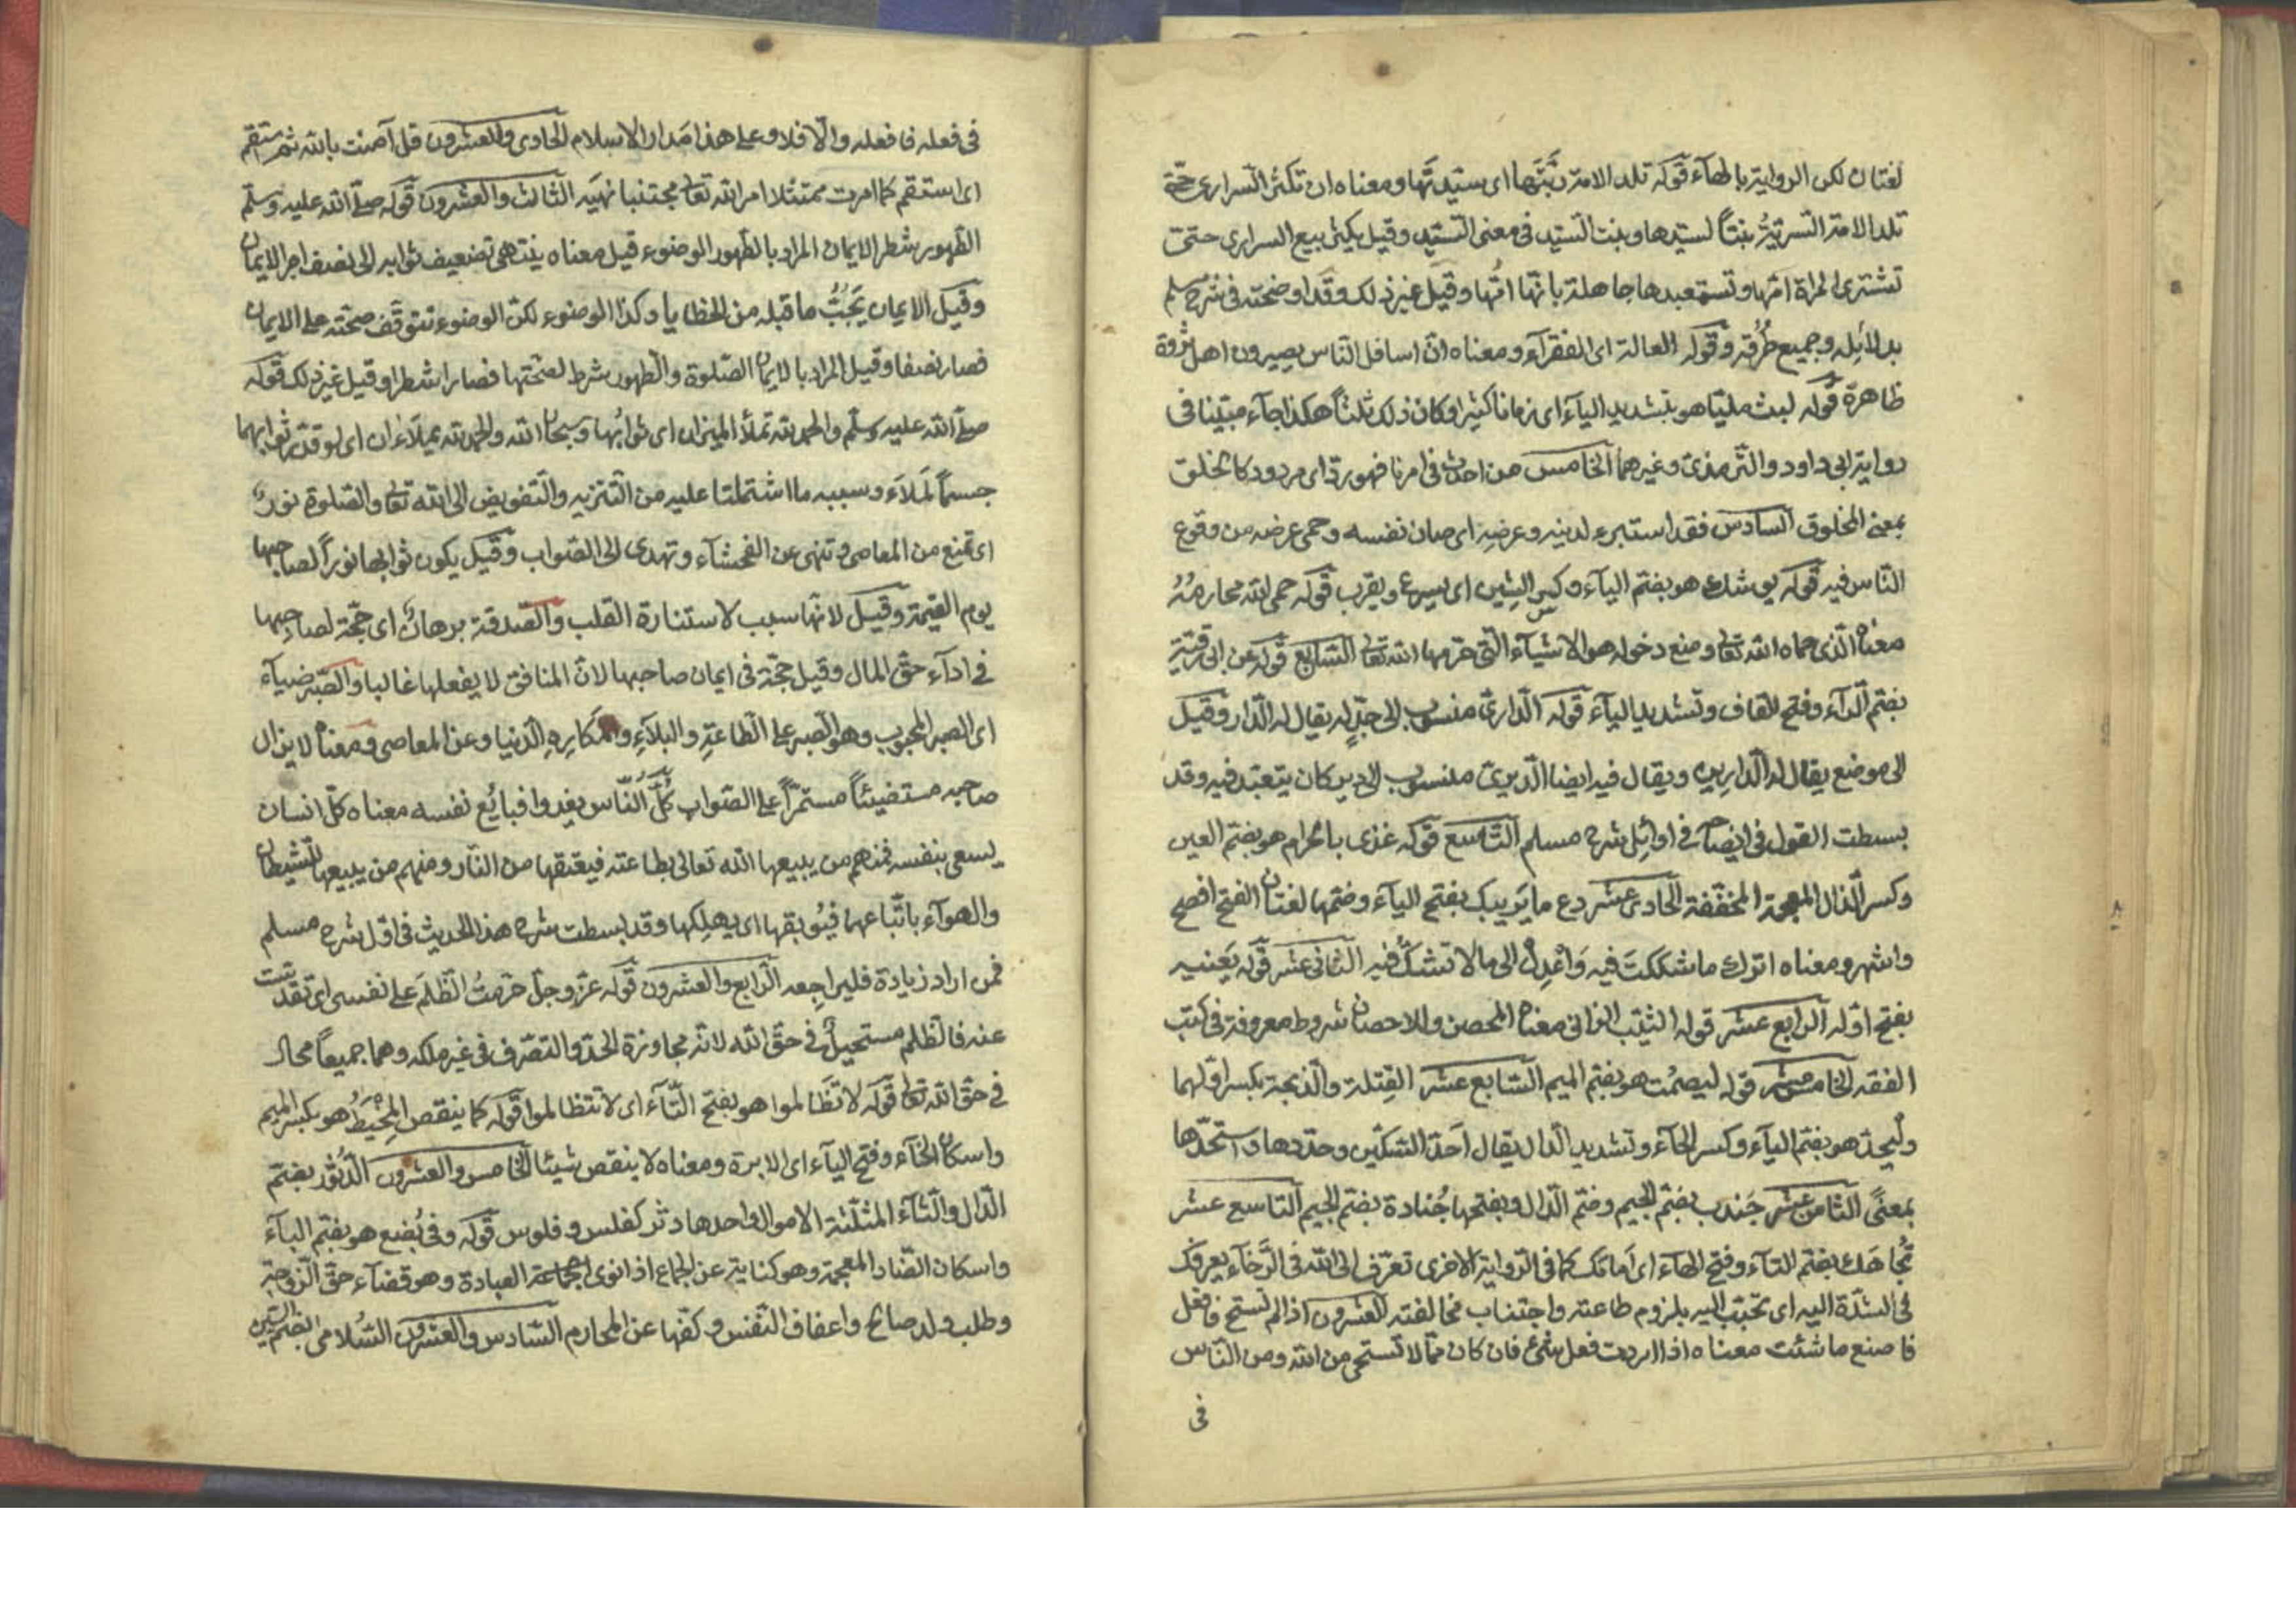 لغتان لكن الرواية بالهآء قوله تلد الامة ربّتَها اى سيّدتها ومعناه ان تكثر السرارى حتّى
تلد الامة السريّة بنتاً لسيّدها وبنت السيّد فى معنى السيّد وقيل يكثر بيع السرارى حتّى
تشترى المراة امّها وتستعبدها جاهلة بانّها امّها وقيل غير ذلك وقد اوضحته فى شرح مسلم
بدلائله وجميع طُرُقه وقوله العالة اى الفقرآء ومعناه انّ اسافل النّاس يصيرون اهل ثروة
ظاهرة قوله لبث مليّا هو بتشديد اليآء اى زمانا كثيرا وكان ذلك ثلثاً هكذا جآء مبيّنا فى
رواية ابى داود والتّرمذىّ وغيرهما الخامس من احدث فى امرنا فهو ردّ اى مردود كالخلق
بمعنى المخلوق السادس فقد استبرء لدينه وعرضه اى صان نفسه وحمى عرضه من وقوع
النّاس فيه قوله يوشك هو بضم اليآء وكسر الشين اى يسرع ويقرب قوله حمى الله محارمُهُ
معناه الّذى حماه الله تعالى ومنع دخوله هو الاشيآء الّتى حرّمها الله تعالى السّابع قوله عن ابى رقيّة
بضم الرّآء وفتح القاف وتشديد اليآء قوله الدّارىّ منسوب الى جدٍّ له يقال له الدّار وقيل
الى موضع يقال له الدّارين ويقال فيه ايضا الدّيرىّ منسوب الى دير كان يتعبّد فيه وقد
بسطت القول فى ايضاحه فى اوائل شرح مسلم التّاسع قوله غذى بالحرام هو بضم الغين
وكسر الذال المعجمة المخفّفة الحادى عشر دع ما يَريبك بفتح اليآء وضمّها لغتان الفتح افصح
واشهر ومعناه اترك ما شككتَ فيه وَاعْدِلْ الى ما لا تشكّ فيه الثّانى عشر قوله يَعنيه
بفتح اوّله الرابع عشر قوله الثيّب الزانى معناه المحصن وللاحصان شروط معروفة فى كتب
الفقه الخامس عشر قوله ليصمُت هو بضم الميم السّابع عشر القِتلة والذبحة بكسر اوّلهما
وليُحدّ هو بضم اليآء وكسر الحآء وتشديد الدّال يقال اَحدّ السّكّين وحدّدها واستحدّها
بمعنًى الثّامن عشر جَندب بضم الجيم وضم الدّال وبفتحها جُنادة بضم الجيم التّاسع عشر
تُجاهَك بضم التآء وفتح الهآء اى اَمامَك كما فى الرّواية الاخرى تعرّف الى الله فى الرّخآء يعرفك
فى الشدّة اليه اى تحبّب اليه بلزوم طاعته واجتناب مخالفته العشرون اذا لم تستح فافعل
فاصنع ما شئت معناه اذا اردت فعل شئ فان كان ممّا لا تستحى من الله ومن النّاس
فى
فى فعله فافعله والّا فلا وعلى هذا مَدار الاسلام الحادى والعشرون قل آمنت بالله ثم استقم
اى استقم كما امرت ممتثلا امر الله تعالى مجتنبا نهيَه الثالث والعشرون قوله صلّى الله عليه وسلّم
الطّهور شطر الايمان المراد بالطّهور الوضوء قيل معناه ينتهى تضعيف ثوابه الى نصف اجر الايمان
وقيل الايمان يَجُبُّ ما قبله من الخطايا وكذا الوضوء لكنّ الوضوء تتوقّف صحّته على الايمان
فصار نصفا وقيل المراد بالايمان الصّلوة والطّهور شرط لصحّتها فصار شطرا وقيل غير ذلك قوله
صلّى الله عليه وسلّم والحمد لله تملأ الميزان اى ثوابُها وسبحان الله والحمد لله يملآءان اى لو قدّر ثوابهما
جسماً لَملآء وسببه ما اشتملتا عليه من التّنزيه والتّفويض الى الله تعالى والصّلوة نورٌ
اى تمنع من المعاصى وتنهى عن الفحشآء وتهدى الى الصّواب وقيل يكون ثوابها نوراً لصاحبها
يوم القيمة وقيل لانّها سبب لاستنارة القلب والصّدقة برهان اى حجّة لصاحِبها
فى ادآء حقّ المال وقيل حجّة فى ايمان صاحبها لانّ المنافق لا يفعلها غالبا والصّبر ضيآء
اى الصبر المحبوب وهو الصّبر على الطّاعةِ والبلآءِ والمكارهِ الدّنيا وعن المعاصى ومعناه لا يزال
صاحبه مستضيئاً مستمرّاً على الصّواب كُلُّ النّاس يغدوا فبائع نفسه معناه كلّ انسان
يسعى بنفسه فمنهم من يبيعها الله تعالى بطاعته فيعتقها من النّار ومنهم من يبيعها للشيطان
والهوآء باتّباعهما فيُوبقها اى يهلِكها وقد بسطت شرح هذا الحديث فى اوّل شرح مسلم
فمن اراد زيادة فليراجِعه الرّابع والعشرون قوله عزّ وجلّ حرّمتُ الظّلمَ على نفسى اى تقدّست
عنه فالظّلم مستحيلٌ فى حقّ الله لانّه مجاوزة الحدّ والتّصرّف فى غير ملكه وهما جميعاً محال
فى حقّ الله تعالى قوله لا تظَّالموا هو بفتح التّآء اى لا تتظالموا قوله كما ينقص المِخْيَطُ هو بكسر الميم
واسكان الخآء وفتح اليآء اى الابرة ومعناه لا ينقص شيئا الخامس والعشرون الدّثُور بضم
الدّال والثّآء المثلّثة الاموال واحدها دثر كفلس وفلوس قوله وفى بُضع هو بضم البآء
واسكان الضّاد المعجمة وهو كناية عن الجماع اذا نوى العبادة وهو قضآء حقّ الزّوجة
وطلب ولد صالح واعفاف النّفس وكفّها عن المحارم السّادس والعشرون السّلامى بضم السّين